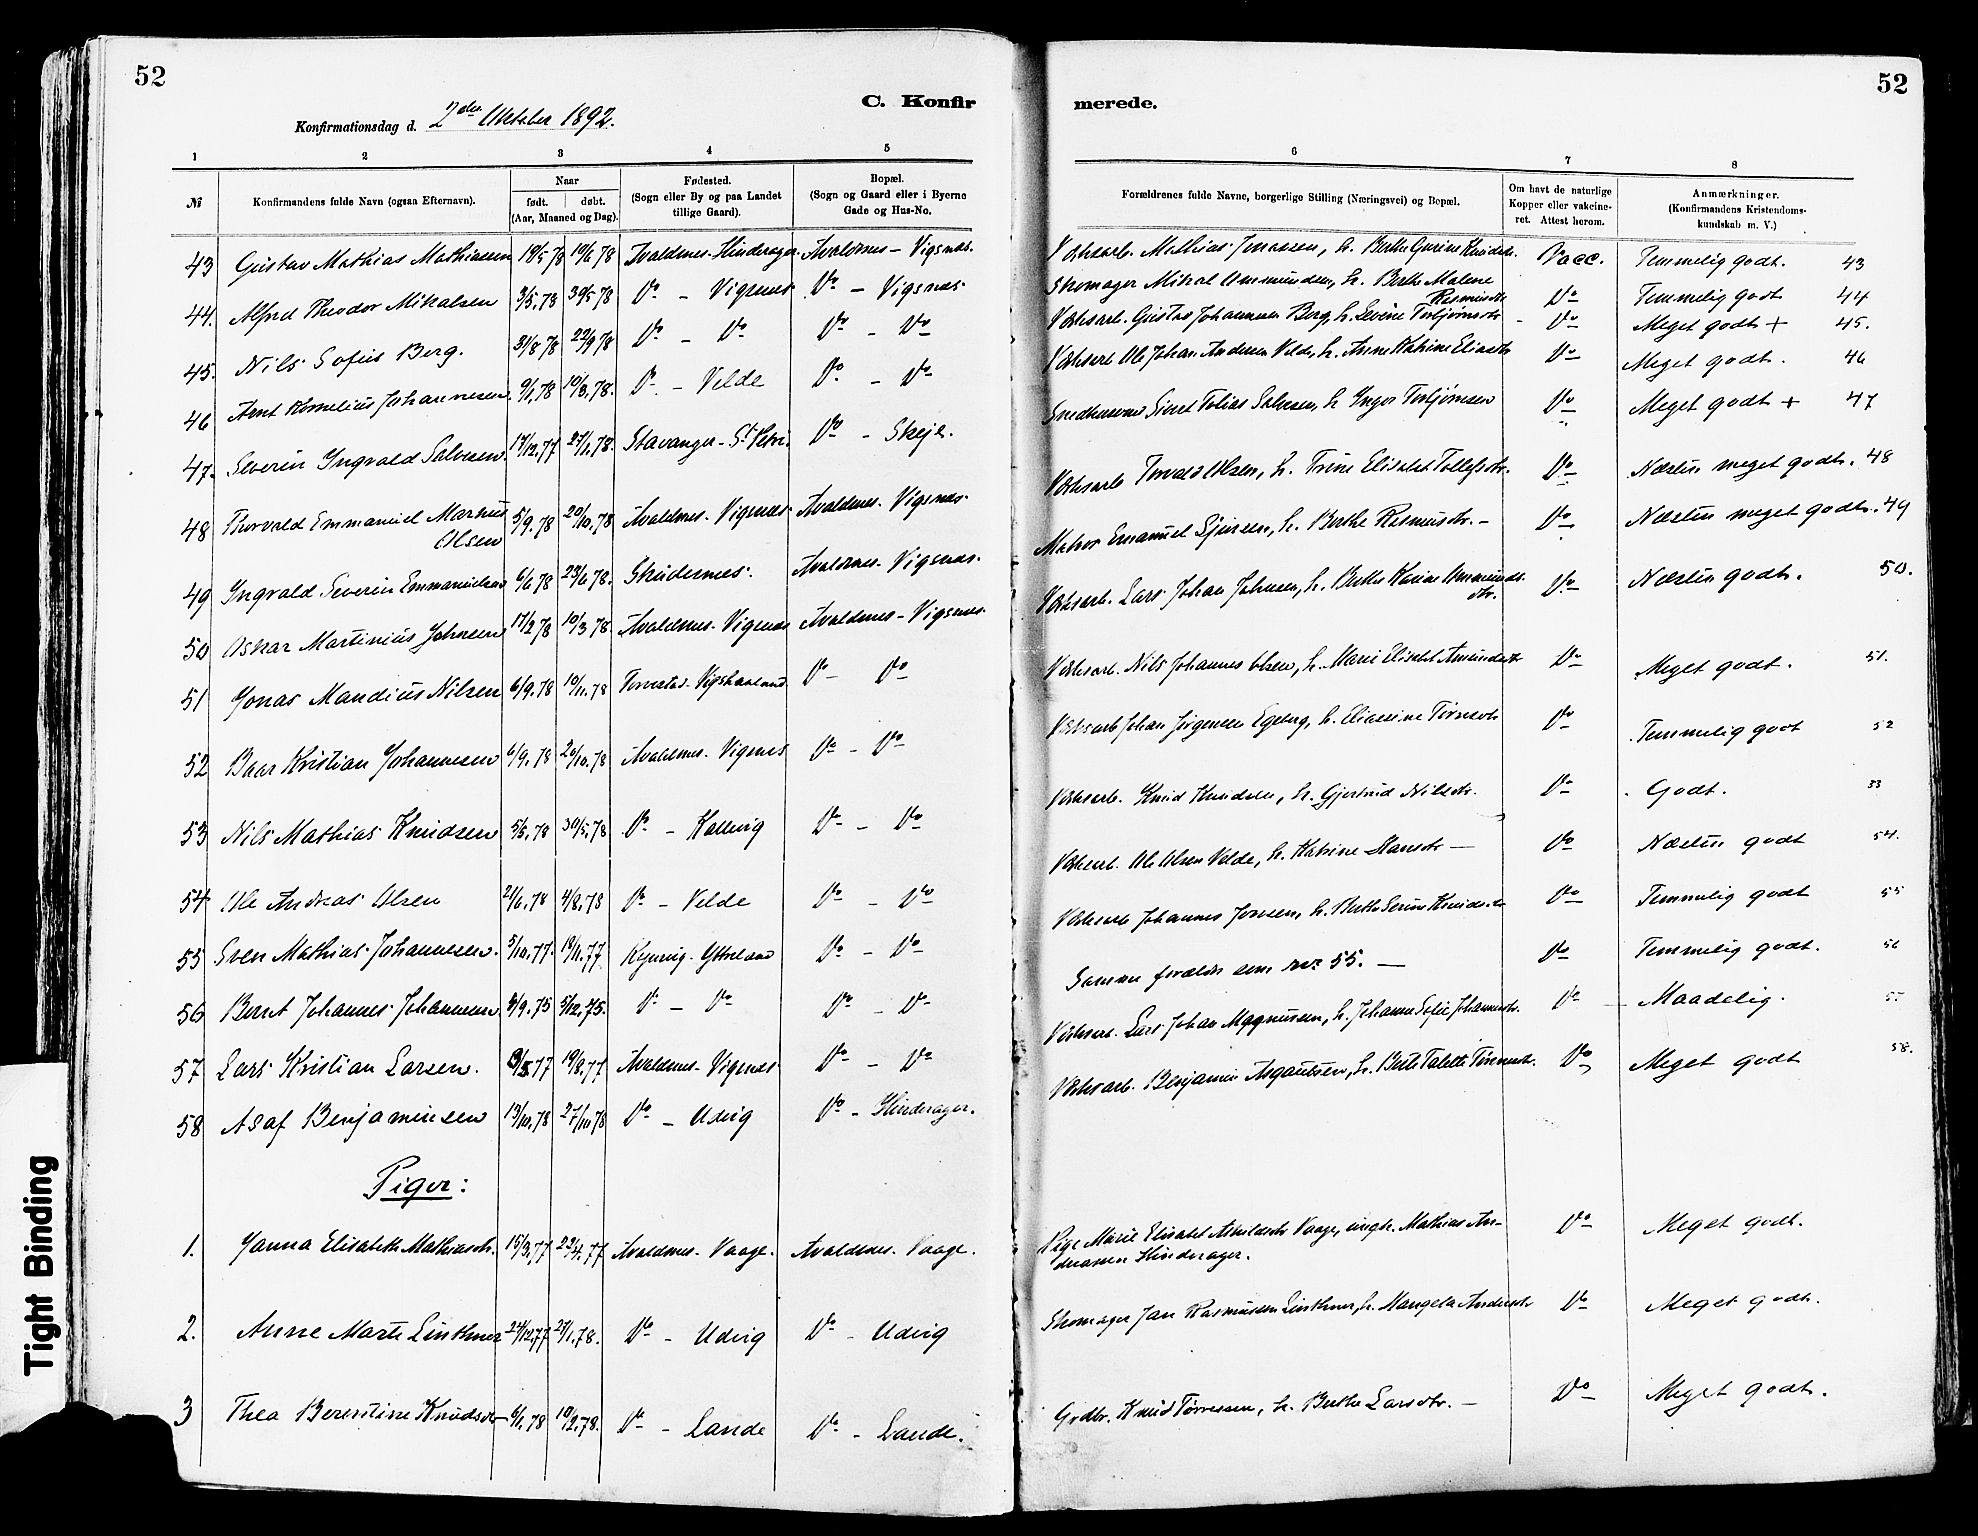 52
C. Konfir
Konfirmationsdag d. 2den Oktober 1892.
1 2 3 4 5
№ Konfirmandens fulde Navn (ogsaa Efternavn).
Naar
født. døbt.
(Aar, Maaned og Dag).
Fødested.
(Sogn eller By og paa Landet
tillige Gaard).
Bopæl.
(Sogn og Gaard eller i Byerne
Gade og Hus-No.
43 Gustav Mathias Mathiassen 18/5 78 10/6 78 Avaldsnes - Hinderager Avaldsnes - Vigsnæs.
44. Alfred Theodor Mikalsen 3/5, 78 30/5 78 Do - Vigsnæs Do - Vigsnæs
45. Nils Sofus Berg. 31/8 78 22/9 78 Do - Do Do - Do
46 Arnt Kornelius Johannesen. 9/1, 78 10/3, 78. Do - Velde Do - Do
47. Severin Ingvald Salvesen. 17/12, 77 27/1, 78. Stavanger - St Petri. Do - Skeje.
48 Thorvald Emmanuel Marius
Olsen 5/9. 78 20/10, 78 Avaldsnes - Vigsnæs Avaldsnes - Vigsnæs
49 Ingvald Severin Emmanuelsen 6/6 78 23/6 78. Skudesnes. Avaldsnes - Vigsnæs.
50 Oskar Martinius Johnsen 17/2 78 10/3 78 Avaldsnes - Vigsnæs Avaldsnes - Vigsnæs.
51 Jonas Mandius Nilsen 6/9. 78 10/11. 78 Torvestad - Vigshaaland Do - Do
52 Baar Kristian Johannesen 6/9. 78 20/10. 78 Avaldsnes. Vigsnæs Do - Do
53 Nils Mathias Knudsen 5/5, 78 30/5, 78 Do - Kallevig Do - Do
54 Ole Andreas Olsen 21/6. 78 4/8. 78 Do - Velde Do - Do
55 Sven Mathias Johannesen. 5/10. 77. 18/11. 77 Yttreland Do - Do
56 Bernt Johannes Johannesen 8/9. 75 5/12. 75. Do - Do Do - Do
57 Lars Kristian Larsen. 77 19/8. 77 Avaldsnes - Vigsnæs Do - Do
58 Asaf Benjaminsen 13/10. 78 27/10 78 Do - Udvig Do - Hinderager.
Piger:
1. Janna Elisabeth Mathiasdtr. 15/3, 77 22/4. 77 Avaldsnes - Vaage. Avaldsnes - Vaage.
2. Anne Marte Linthner 24/12 77 27/1, 78. Do - Udvig Do - Udvig
3 Thea Berentine Knudsdtr 6/1, 78 10/2. 78. Do - Lande Do - Lande.
52
merede.
6 7 8
Forældrenes fulde Navne, borgerlige Stilling (Næringsvei) og Bopæl.
Om havt de naturlige
Kopper eller vakcine-
ret. Attest herom.
Anmærkninger.
(Konfirmandens Kristendoms-
kundskab m. V.)
Værksarb. Mathias Jonassen, h. Berthe Gurine Knudsdtr. Vacc. Temmelig godt. 43
Skomager Mikal Ammundsen, h. Berthe Malene
Rasmusdtr. Do Temmelig godt 44
Værksarb. Gustav Johannesen Berg, h. Sevine Torbjørnsdtr - Do Meget godt + 45.
Værksarb Ole Johan Andersen Velde, h. Anne Katrine Eliasdtr Do Meget godt. 46
Sivert Tobias Salvesen, h Inger Torbjørnsen Do Meget godt + 47
Værksarb Torvald Olsen, h. Trine Elisabet Tollefsdtr. Do Næsten meget godt. 48
Matros Emanuel Sjursen, h. Berthe Rasmusdtr. - Do Næsten meget godt. 49
Værksarb. Lars Johan Johnsen, h. Berthe Karine Ammunds
dtr. Do Næsten godt. 50.
Værksarb. Nils Johannes Olsen, h. Marie Elisabet Amundsdtr Do Meget godt. 51.
Værksarb Johan Jørgensen Egeberg, h. Eliassine Tørresdtr Do Temmelig godt 52
Værksarb. Knud Knudsen, h. Gjertrud Nilsdtr. Do Godt. 53
Værksarb. Ole Olsen Velde, h. Katrine Hansdtr - Do Næsten godt 54.
Værksarb Johannes Jonsen, h. Berthe Serine Knudsdtr Do Temmelig godt 55
Samme forældre som nr. 55. - Do Temmelig godt. 56
Værksarb. Lars Johan Magnussen, h. Johanne Sofie Johannesdtr. Do - Maadelig.
Værksarb. Benjamin Asgautsen, h. Berte Talette Do Meget godt 58.
Pige Marie Elisabet Askildsdtr Vaage, ungk. Mathias An-
dreassen Hinderager. Do Meget godt.
Skomager Jan Rasmussen Linthner, h. Mangela Andersdtr Do Meget godt.
Grdbr. Knud Tørressen, h. Berthe Larsdtr. - Do Meget godt.
Tight Binding